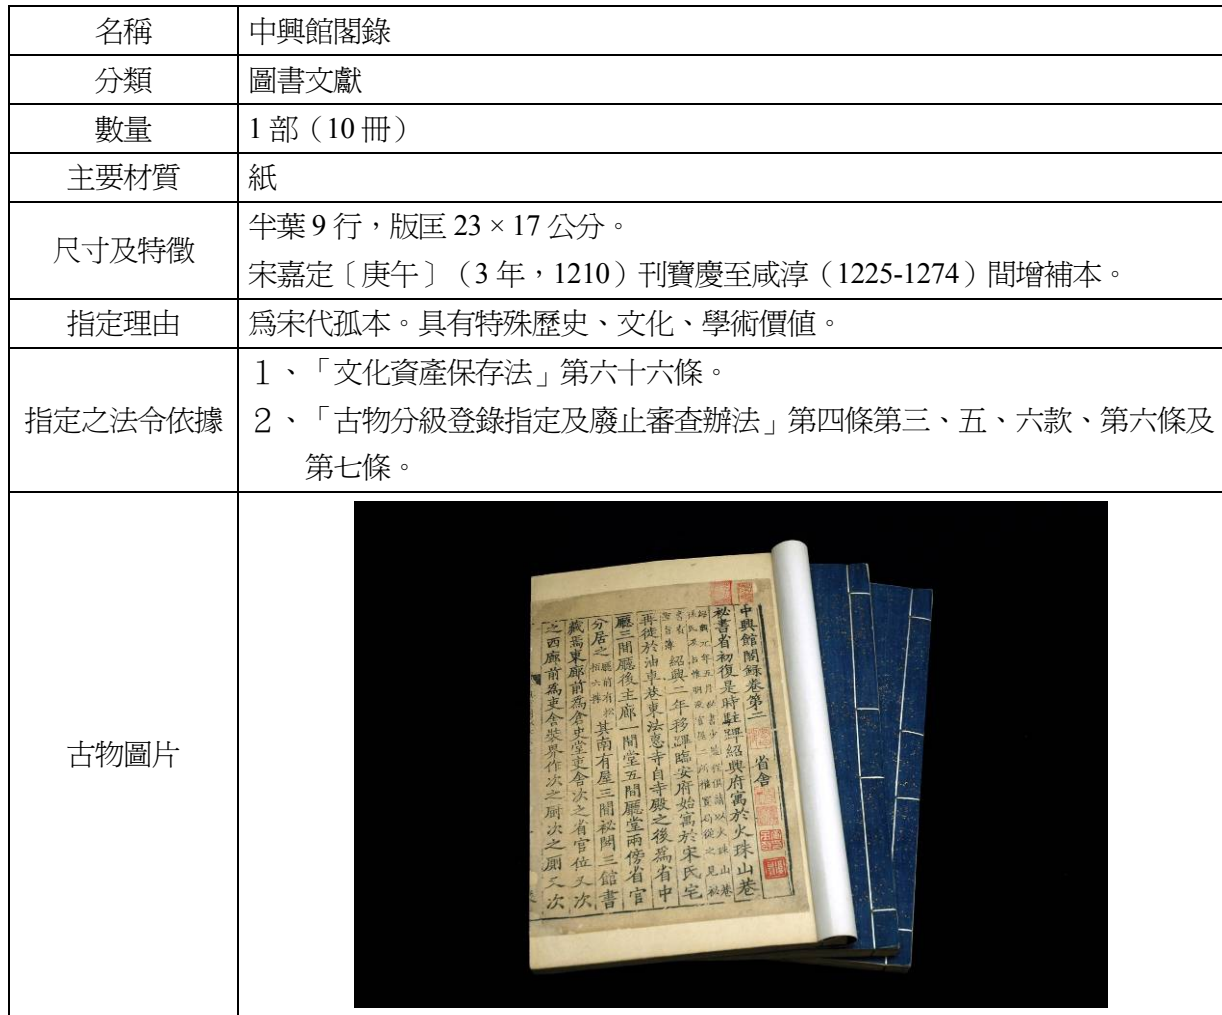 名稱
中興館閣錄
分類
圖書文獻
數量
1 部（10 冊）
主要材質
紙
尺寸及特徵
半葉 9 行，版匡 23 × 17 公分。
宋嘉定〔庚午〕（3 年，1210）刊寶慶至咸淳（1225-1274）間增補本。
指定理由
為宋代孤本。具有特殊歷史、文化、學術價值。
指定之法令依據
１、「文化資產保存法」第六十六條。
２、「古物分級登錄指定及廢止審查辦法」第四條第三、五、六款、第六條及
第七條。
古物圖片
中興館閣録卷第二 省舍
秘書省初復是時駐蹕紹興府寓於火珠山巷
紹興二年移蹕臨安府始寓於宋氏宅
再徙於油車巷東法惠寺自寺殿之後為省中
廳三間廳後主廊一間堂五間廳堂兩傍省官
分居之其南有屋三間祕閣三館書
藏焉東廊前為倉史堂吏舍次之省官位又次
之西廊前為吏舍裝界作次之厨次之厠又次